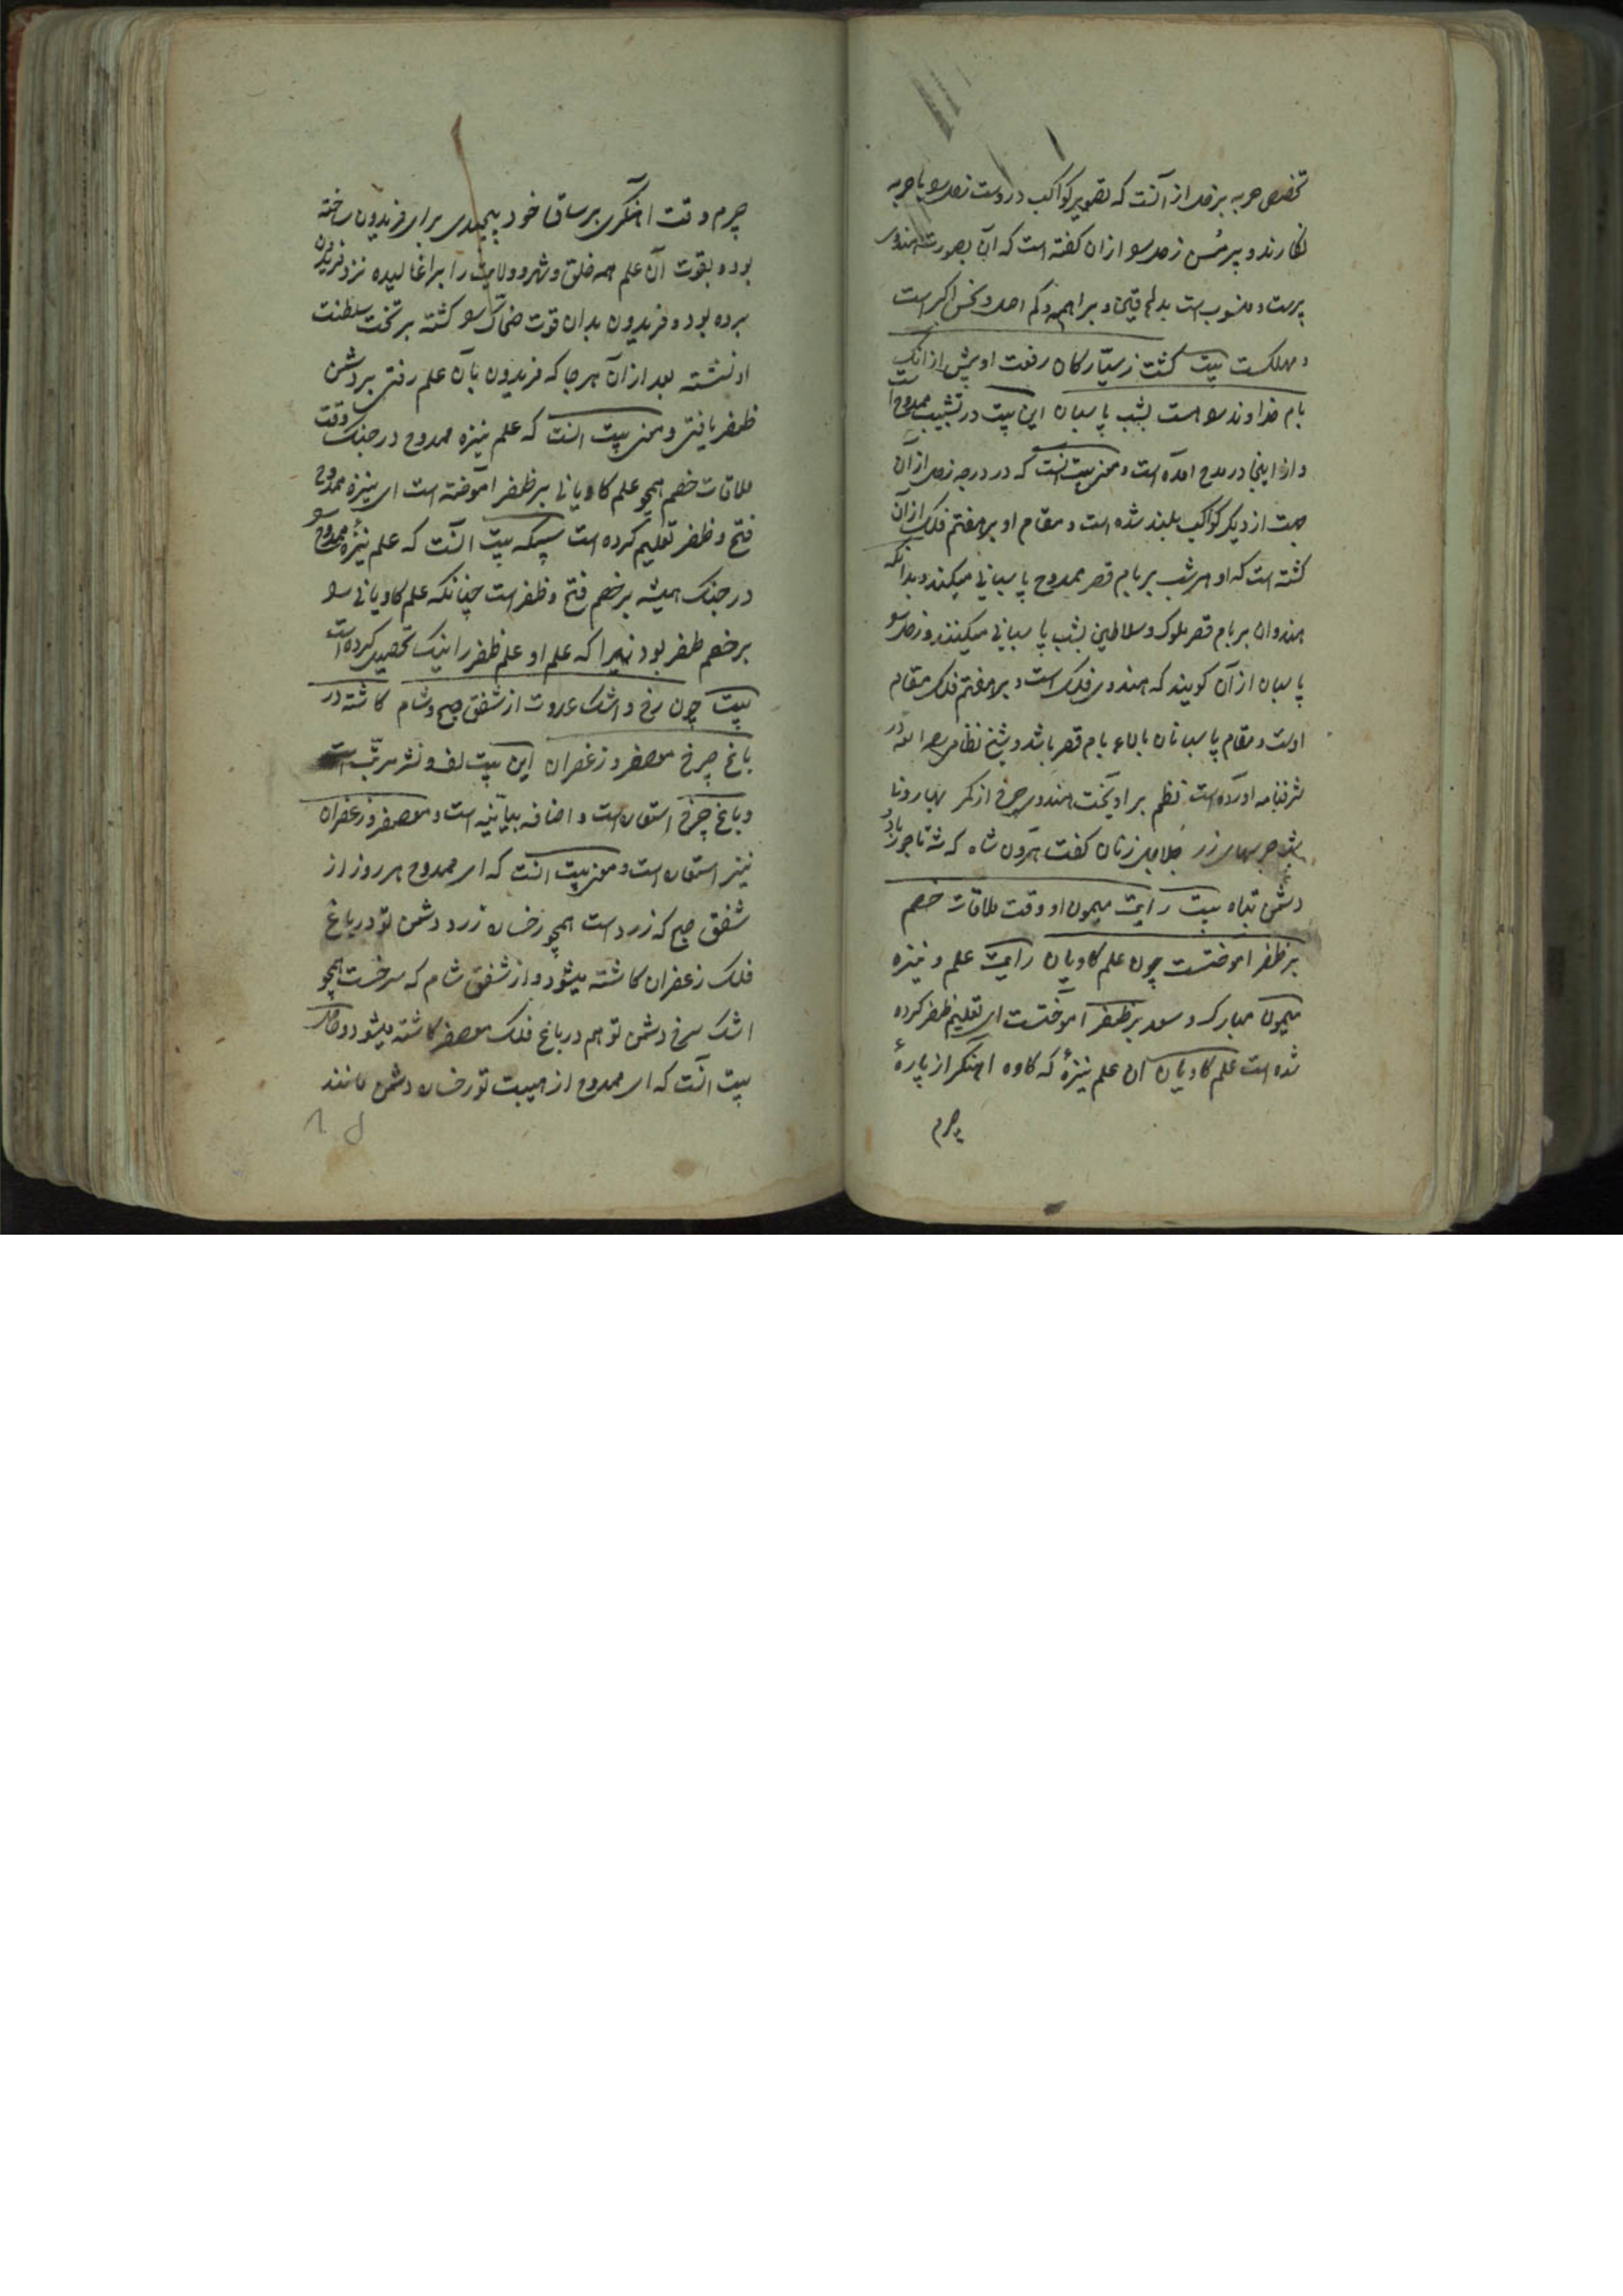 تخصیص حربه بزحل از آنست که تصویر کواکب در دست زحل حربه
نگارند و پیر مسن زحل را ازان گفته است که آن بصورت هندوی
پیرست و منسوب است و براهمه و نحس اکبر است
و مهلکست بیت گشت ز سیارکان رفعت او بیش از انک
بام خداوند را هست بشب پاسبان این بیت در تشبیب ممدوح است
و از اینجا در مدح آمده است و معنی بیت آنست که در درجه زحل از آن
جهت از دیگر کواکب بلند شده است و مقام او بر هفتم فلک از آن
گشته است که او هر شب بر بام قصر ممدوح پاسبانی میکند و بدانکه
هندوان بر بام قصر ملوک و سلاطین بشب پاسبانی میکنند و زحل را
پاسبان از آن کویند که هندوی فلک است و بر هفتم فلک مقام
اوست و مقام پاسبانان بالاء بام قصر باشد و شیخ نظامی رحمه الله در
شرفنامه آورده است نظم بر آویخت هندوی چرخ از کمر بهارونی
شب جرسهای زر جلاجل زنان گفت هارون شاه که شه تاجور باد
دشمن تباه بیت رایت میمون او وقت ملاقات خصم
بر ظفر آموختست چون علم کاویان رایت علم و نیزه
میمون مبارک و سعد بر ظفر آموختست ای تعلیم ظفر کرده
شده است علم کاویان آن علم نیزهٔ که کاوه آهنگر از پارهٔ
چرم
چرم وقت آهنگری بر ساق خود پیچیدی برای فریدون ساخته
بود و بقوت آن علم همه خلق و شهر و ولایت را بر آغالیده نزد فریدون
برده بود و فریدون بدان قوت ضحاک را کشته بر تخت سلطنت
او نشسته بعد از آن هر جا که فریدون بآن علم رفتی بر دشمن
ظفر یافتی و معنی بیت آنست که علم نیزه ممدوح در جنگ وقت
ملاقات خصم همچو علم کاویانی بر ظفر آموخته است ای نیزه ممدوح
فتح و ظفر تعلیم کرده است بیت آنست که علم نیزهٔ ممدوح را
در جنگ همیشه بر خصم فتح و ظفر است چنانکه علم کاویانی را
بر خصم ظفر بود زیرا که علم او علم ظفر را نیک تحصیل کرده است
بیت چون رخ و اشک عدوت از شفق صبح و شام کاشته در
باغ چرخ معصفر و زعفران این بیت لف و نشر مرتب است
و باغ چرخ استعاره است و اضافه بیانیه است و معصفر و زعفران
نیز استعاره است و معنی بیت آنست که ای ممدوح هر روز از
شفق صبح که زرد است همچو رخساره زرد دشمن تو در باغ
فلک زعفران کاشته میشود و از شفق شام که سرخست همچو
اشک سرخ دشمن تو هم در باغ فلک معصفر کاشته میشود و حاصل
بیت آنست که ای ممدوح از هیبت تو رخساره دشمن مانند